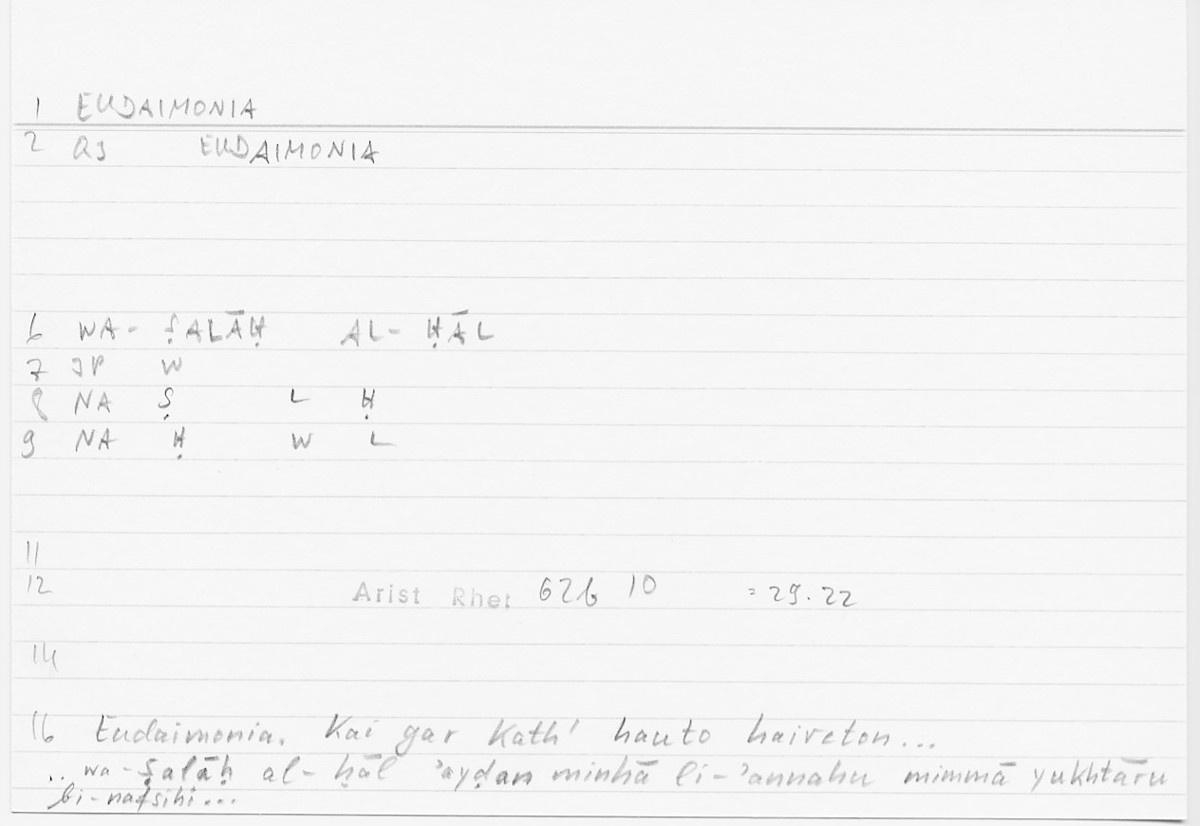 1 EUDAIMONIA
2 QS EUDAIMONIA
6 WA- ṢALĀḤ AL- ḤĀL
7 JP W
8 NA Ṣ L Ḥ
9 NA Ḥ W L
11
12 Arist Rhet 62b 10 = 29.22
14
16 Eudaimonia. Kai gar kath' hauto haireton...
.. wa-ṣalāḥ al-ḥāl 'ayḍan minhā li-'annahu mimmā yukhtāru
bi-nafsihi...